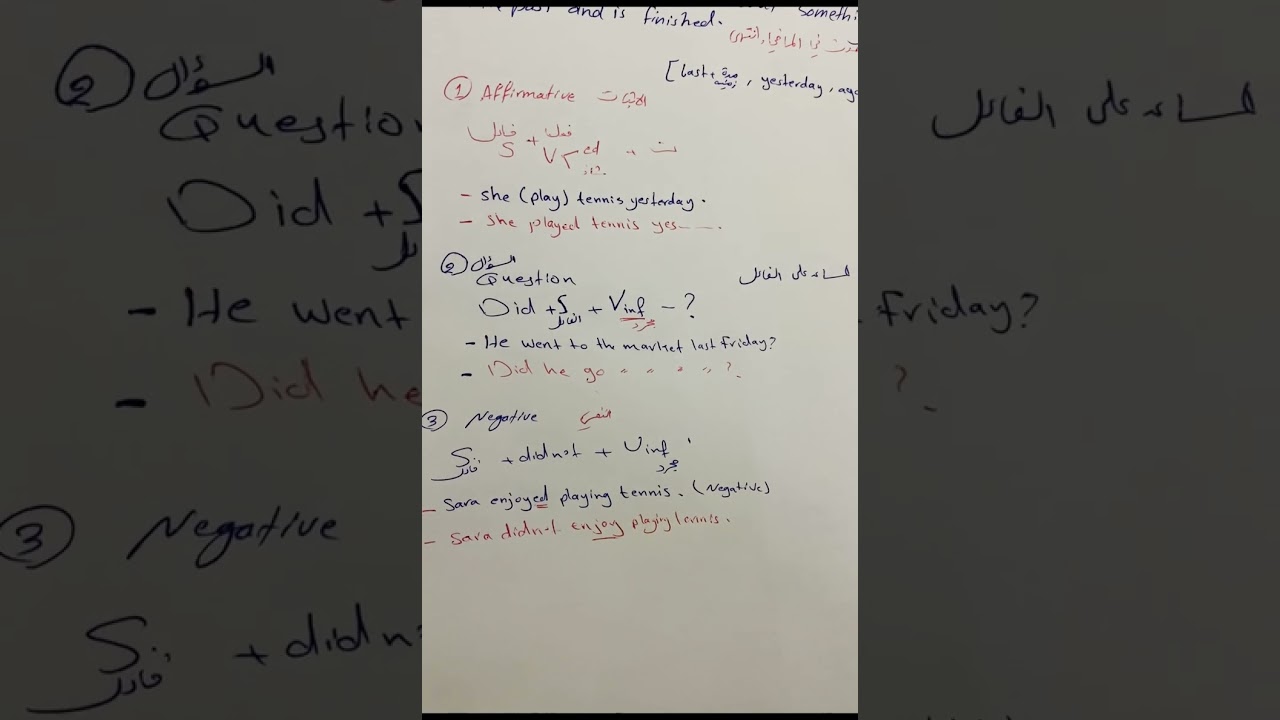 past and is finished. somethi
في الماضي وانتهى
[last + مدة زمنية, yesterday, ago
① Affirmative الاثبات
فاعل + فعل
S + V2 ed + ت
- she (play) tennis yesterday.
- She played tennis yes-----.
② السؤال
Question على الفاعل
Did + S + Vinf - ?
الفاعل مجرد
- He went to the market last friday?
- Did he go " " " " ?
③ Negative النفي
S + didnot + Vinf
فاعل مجرد
- Sara enjoyed playing tennis. (Negative)
- Sara didn't enjoy playing tennis.